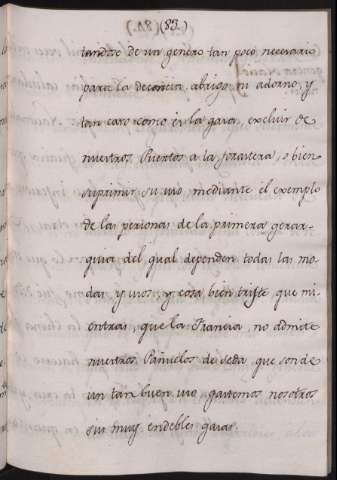 (83.)
tandose de un genero tan poco necesario
para la decencia, abrigo, ni adorno, y
tan caro como és la gasa, excluir de
nuestros Puertos a la forastera, o bien
suprimir su uso mediante el exemplo
de las personas de la primera gerar-
quia del qual dependen todas las mo-
das, y usos, y cosa bien triste, que mi-
entras, que la Francia no admite
nuestros Pañuelos de seda, que son de
un tan buen uso, gastemos nosotros
sus muy endebles gasas.